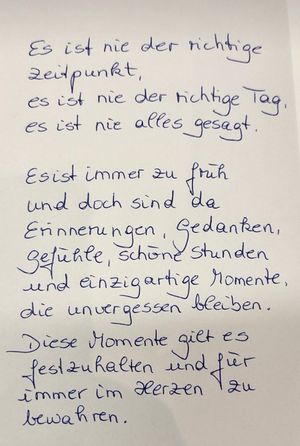 Es ist nie der richtige
Zeitpunkt,
es ist nie der richtige Tag,
es ist nie alles gesagt.
Es ist immer zu früh
und doch sind da
Erinnerungen, Gedanken,
Gefühle, schöne Stunden
und einzigartige Momente,
die unvergessen bleiben.
Diese Momente gilt es
festzuhalten und für
immer im Herzen zu
bewahren.